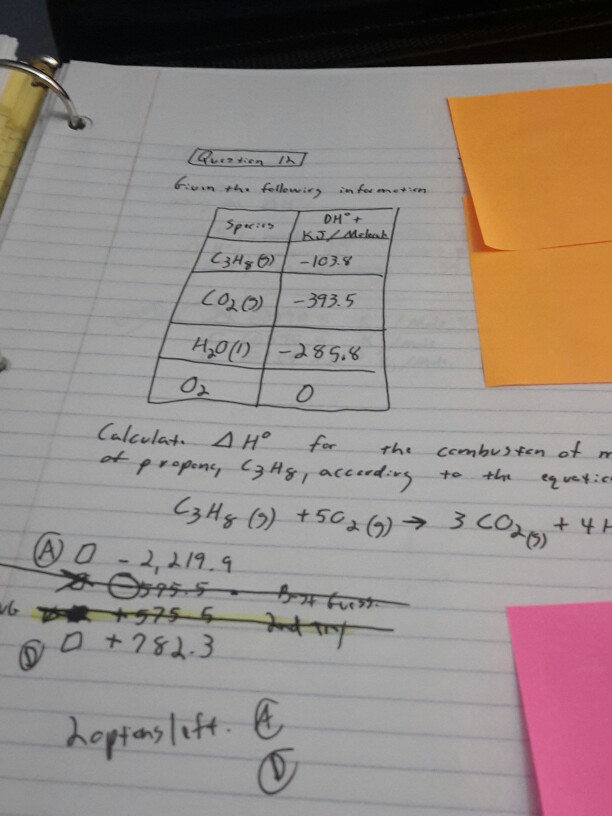 Question 12
Given the following information
Species
DH° +
KJ/Molecule
C3H8(g)
-103.8
CO2(g)
-393.5
H2O(l)
-285.8
O2
0
Calculate ΔH° for the combusten of m
of propane, C3H8, according to the equatio
C3H8(g) + 5O2(g) → 3CO2(g) + 4H
(A) □ -2,219.9
-595.5. Best Guess.
+575.5 2nd Try
(D) □ +782.3
2 optons left. (A)
(D)